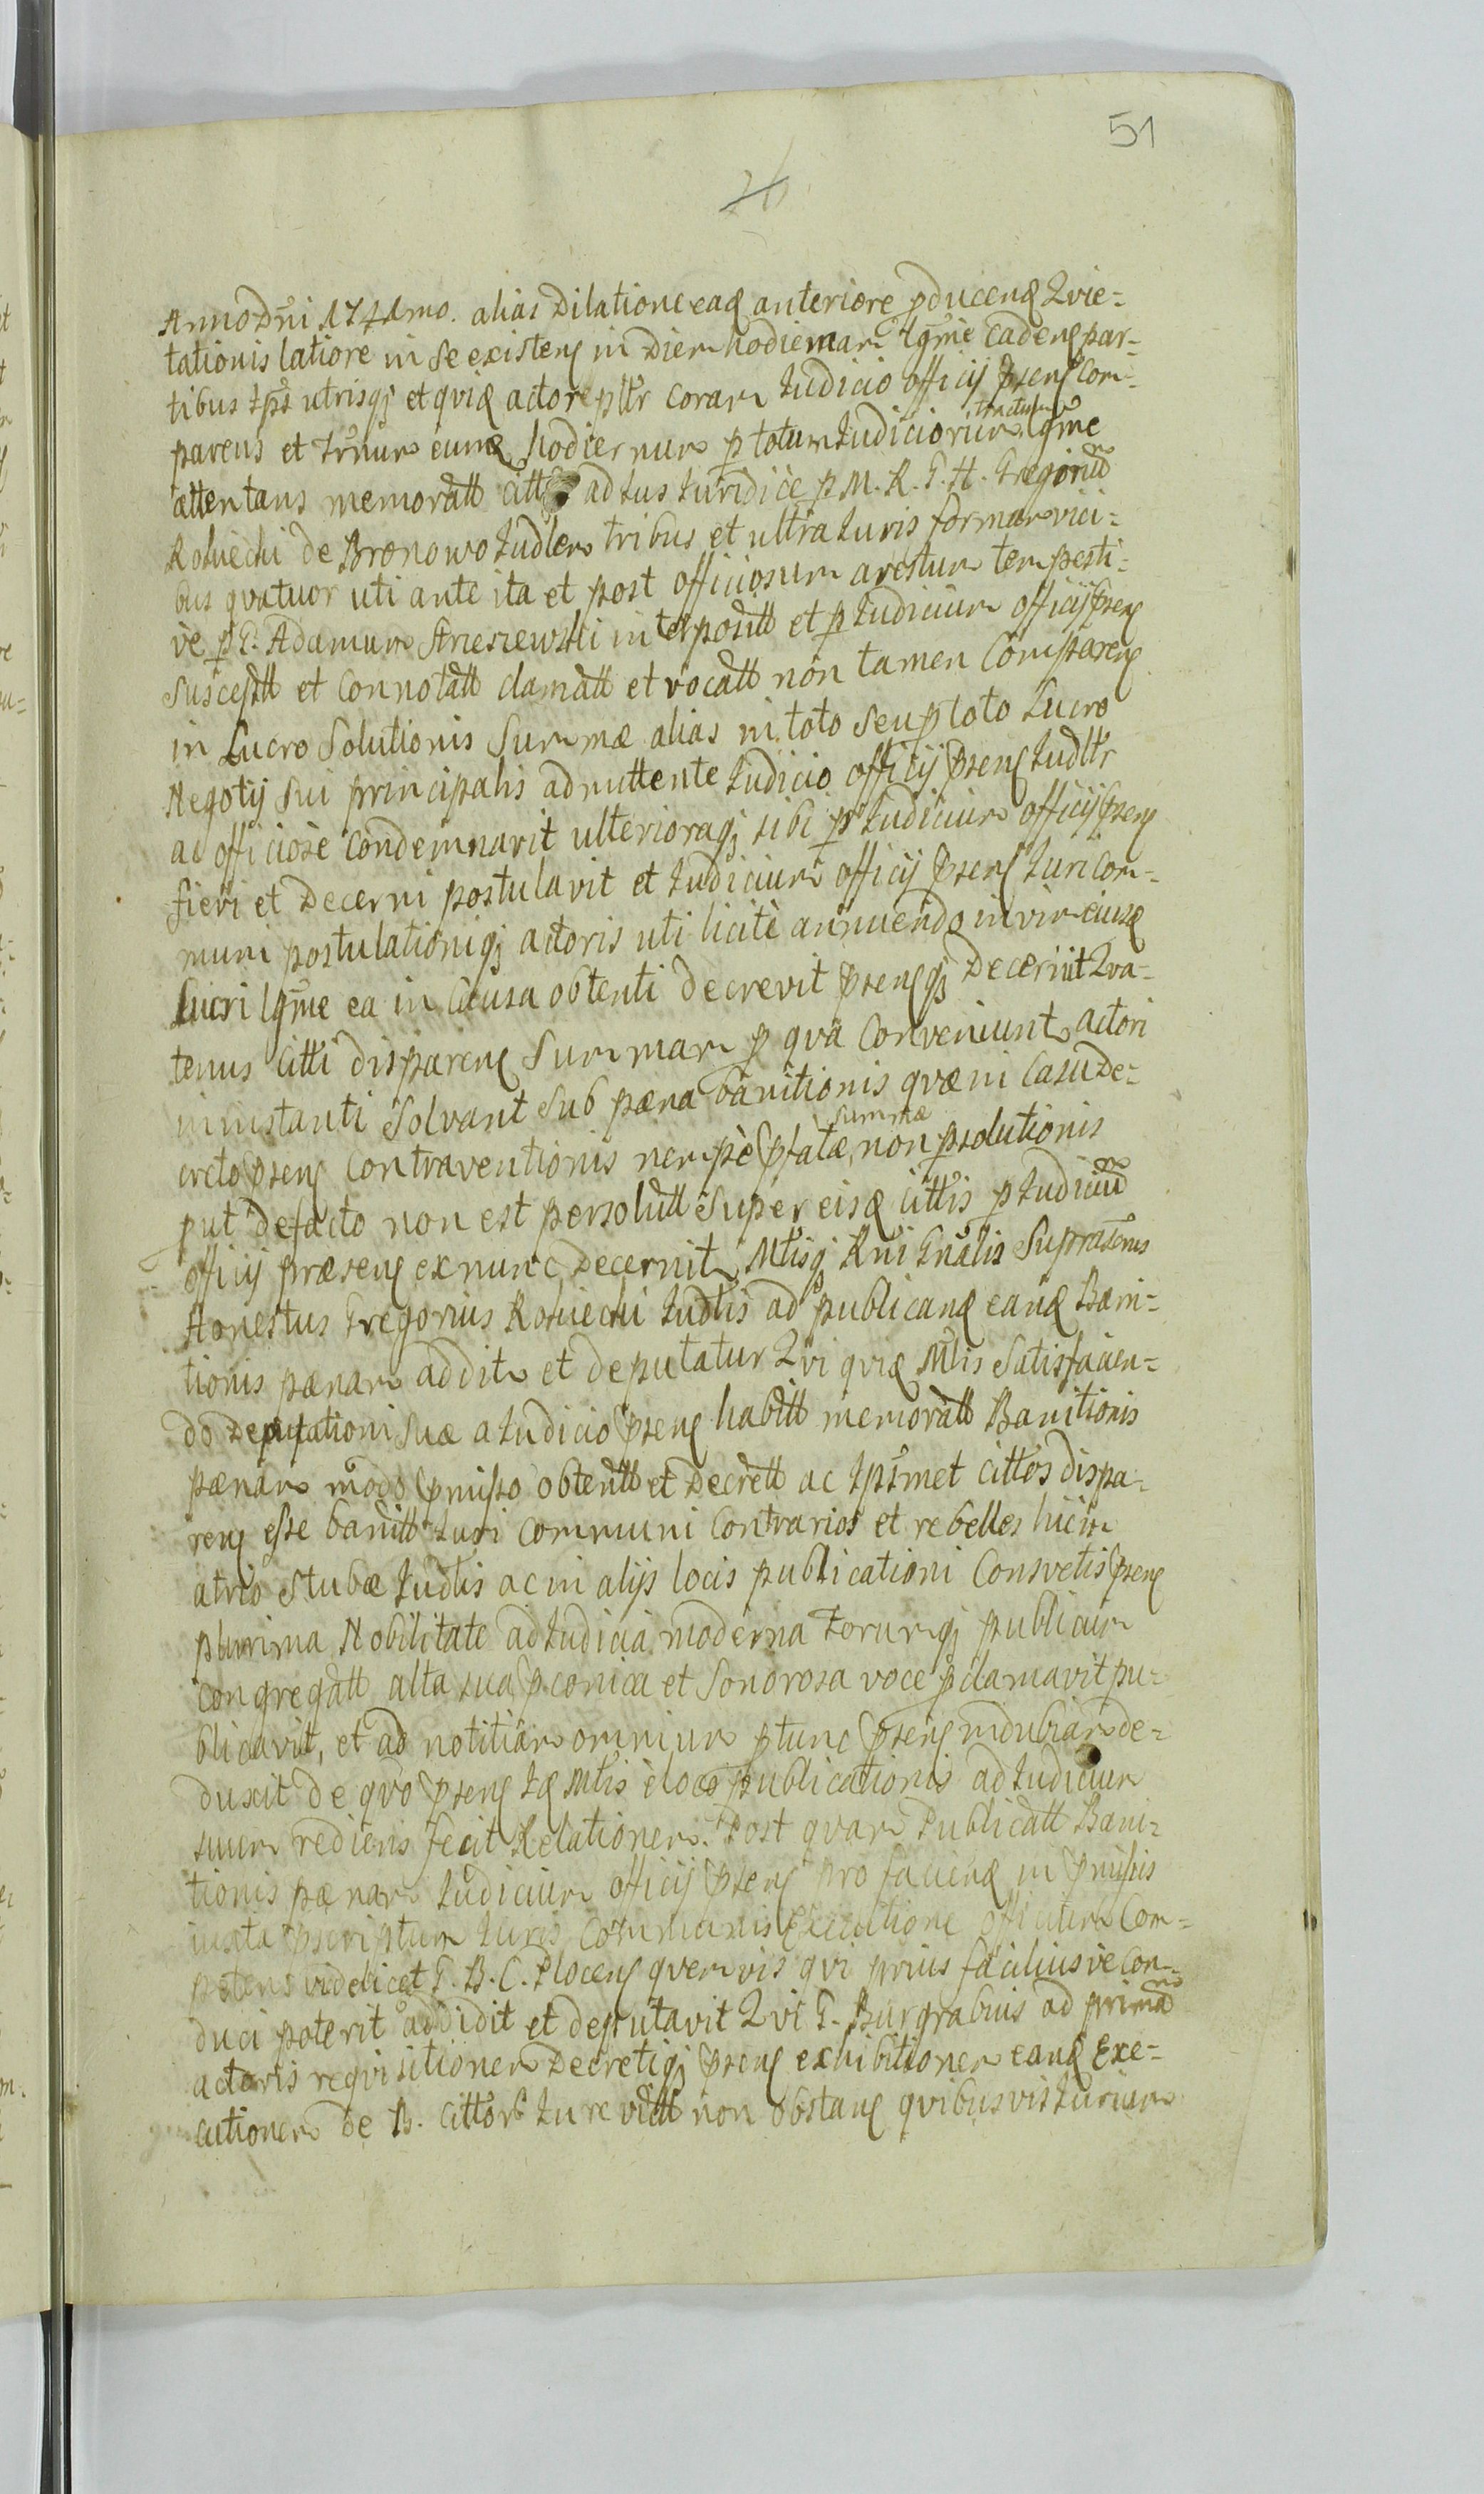 51
Anno Dni 1741mo. alias Dilatione eaq anteriore pducenq Qvie=
tationis latiore in se existenς in Diem hodiernam lgme cadenς par=
tibus ips utrisqj et qviq actore pltr coram Iudicio officij psenς Com=
parens et Trnum eumq hodiernum p totum Iudiciorum tractum lgme
attentans memoratt citt ad Ius Iuridice p M. R. G. H. Gregorium
de Bronowo Iudlem tribus et ultra Iuris formam vici=
bus qvatuor uti ante ita et post officiosum arestum tempesti=
ve p G. Adamum interpositt et p Iudicium officij psenς
susceptt et Connotatt clamatt et vocatt non tamen Comparenς
in Lucro Solutionis Summæ alias in toto seu p toto Lucro
Negotij sui principalis admittente Iudicio officij psenς Iudltr
ac officiose Condemnavit ulterioraqj sibi p Iudicium officij psenς
fieri et Decerni postulavit et Iudicium officij psenς Iuri Com=
muni postulationiqj actoris uti licite annuendo in vim eiusq
Lucri lgme ea in Causa obtenti decrevit psenςqj Decernit Qva=
tenus Citti disparenς Summam p qva Conveniunt actori
in instanti Solvant Sub pæna banitionis qvæ in Casu De=
creto psenς Contraventionis nempe pfatæ summæ non psolutionis
put defacto non est persolutt Super eisq cittis p Iudicium
officij præsenς ex nunc Decernit, Mtisqj Rni Gnalis Suprascrus
Honestus Gregorius Iudlis ad publicanq eanq Bani=
tionis pænam addit et deputatur Qvi qviq Mlis Satisfacien=
do Deputationi Suæ a Iudicio psenς habitt memoratt Banitionis
pænam modo pmisso obtentt et Decrett ac Ipsmet cittos dispa=
renς esse banitt Iuri Communi Contrarios et rebelles hic in
atrio Stubæ Iudlis ac in alijs locis publicationi Consvetis psenς
plurima Nobilitate ad Iudicia moderna Forumqj publicum
Congregatt alta sua pconica et Sonorosa voce pclamavit pu=
blicavit, et ad notitiam omnium ptunc psenς indubiam de=
duxit de qvo psenς Iq Mlis e loco publicationis ad Iudicium
suum rediens fecit Relationem. Post qvam Publicatt Bani=
tionis pænam Iudicium officij psenς pro facienq in pmissis
iuxta pscriptum Iuris Communis Executione officium Com=
petens videlicet G. B. C. Plocenς qvemvis qvi prius faciliusve Con=
duci poterit addidit et deputavit Qvi G. Burgrabius ad primam
actoris reqvisitionem Decretiqj psenς exhibitionem eanq Exe=
cutionem de B. cittorum Iure victt non obstanς qvibusvis Iurium